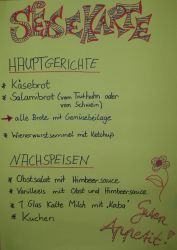 SPEISEKARTE
HAUPTGERICHTE
* Käsebrot
* Salamibrot (vom Truthahn oder
von Schwein)
→ alle Brote mit Gemüsebeilage
* Wienerwurstsemmel mit Ketchup
NACHSPEISEN
* Obstsalat mit Himbeersauce
* Vanilleeis mit Obst und Himbeersauce
* 1 Glas Kalte Milch mit "Kaba"
* Kuchen
Guten
Appetit!